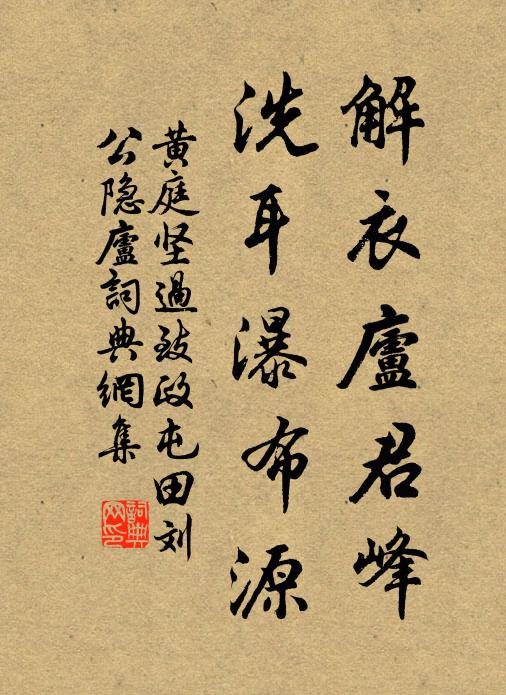 解衣廬君峰
洗耳瀑布源
黄庭坚過致政屯田刘
公隐廬詞典網集
詞典
网印